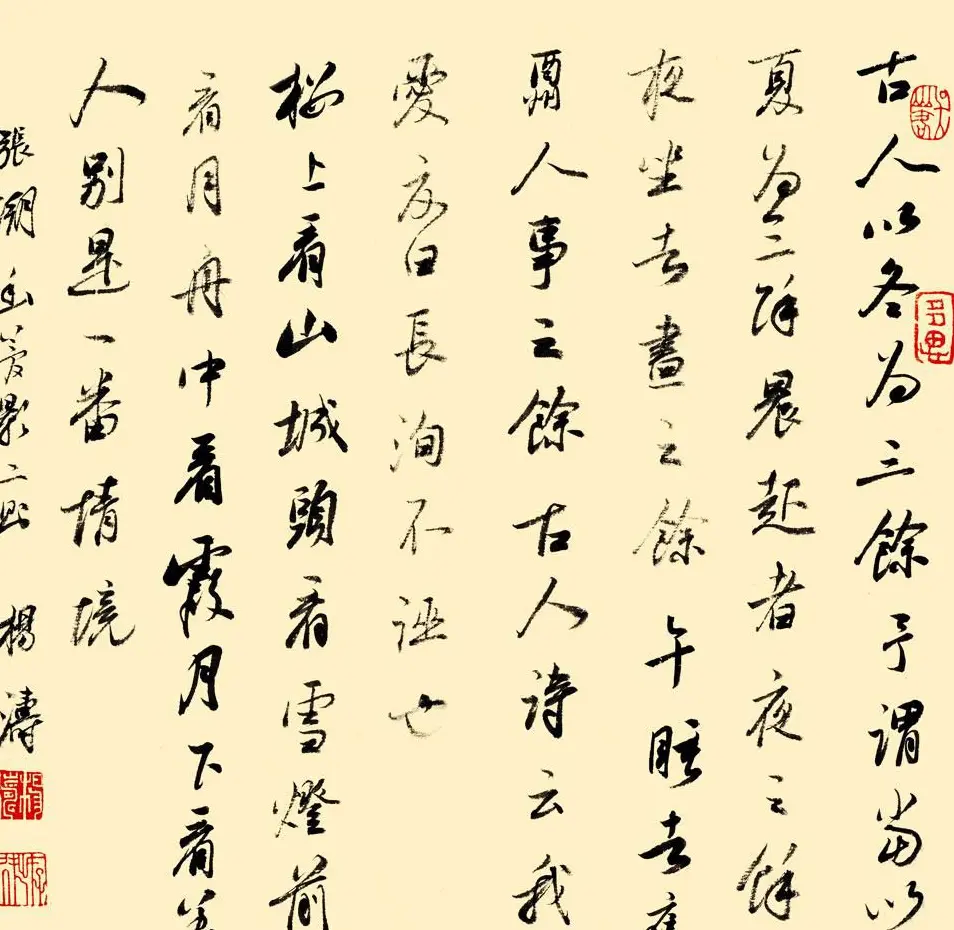 古人以冬為三餘予謂當以
夏為三餘晨起者夜之餘
夜坐者晝之餘午睡者應
酬人事之餘古人詩云我
愛夏日長洵不誣也
樓上看山城頭看雪燈前
看月舟中看霞月下看美
人別是一番情境
張潮幽夢影二則 楊濤